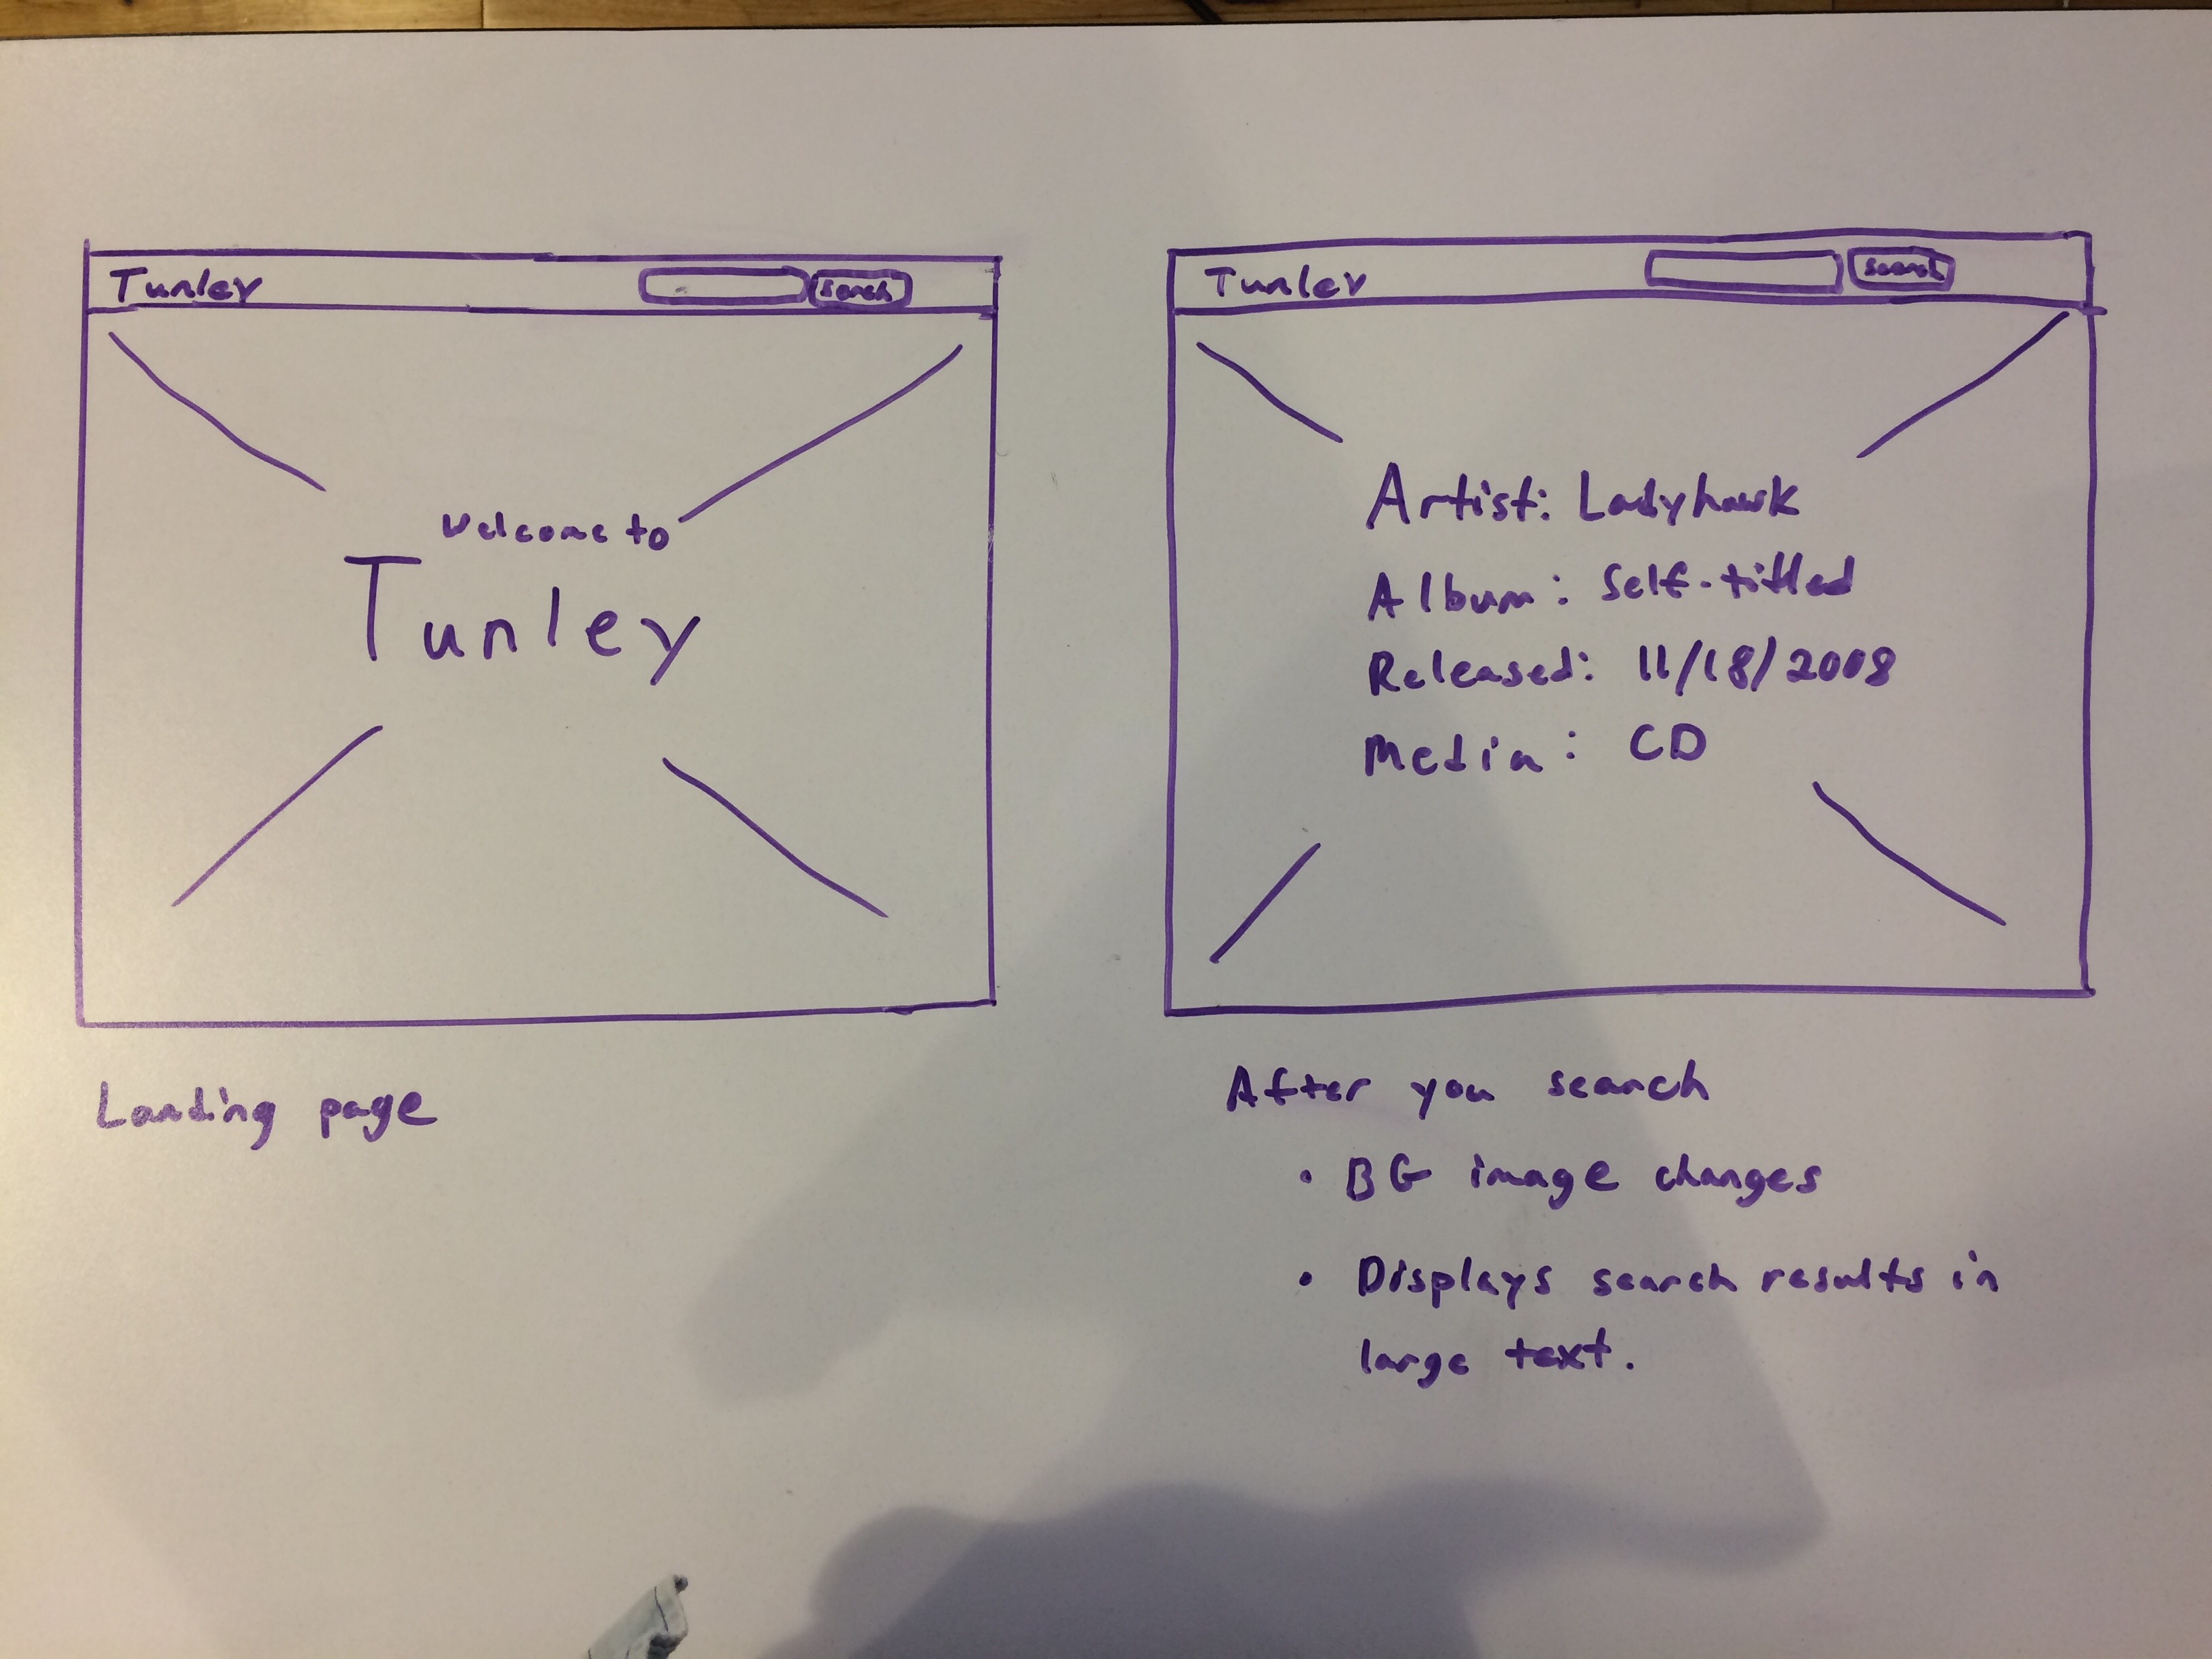 Tunley
Search
Welcome to
Tunley
Landing page
Tunley
Search
Artist: Ladyhawk
Album: Self-titled
Released: 11/18/2008
Media: CD
After you search
• BG image changes
• Displays search results in
large text.